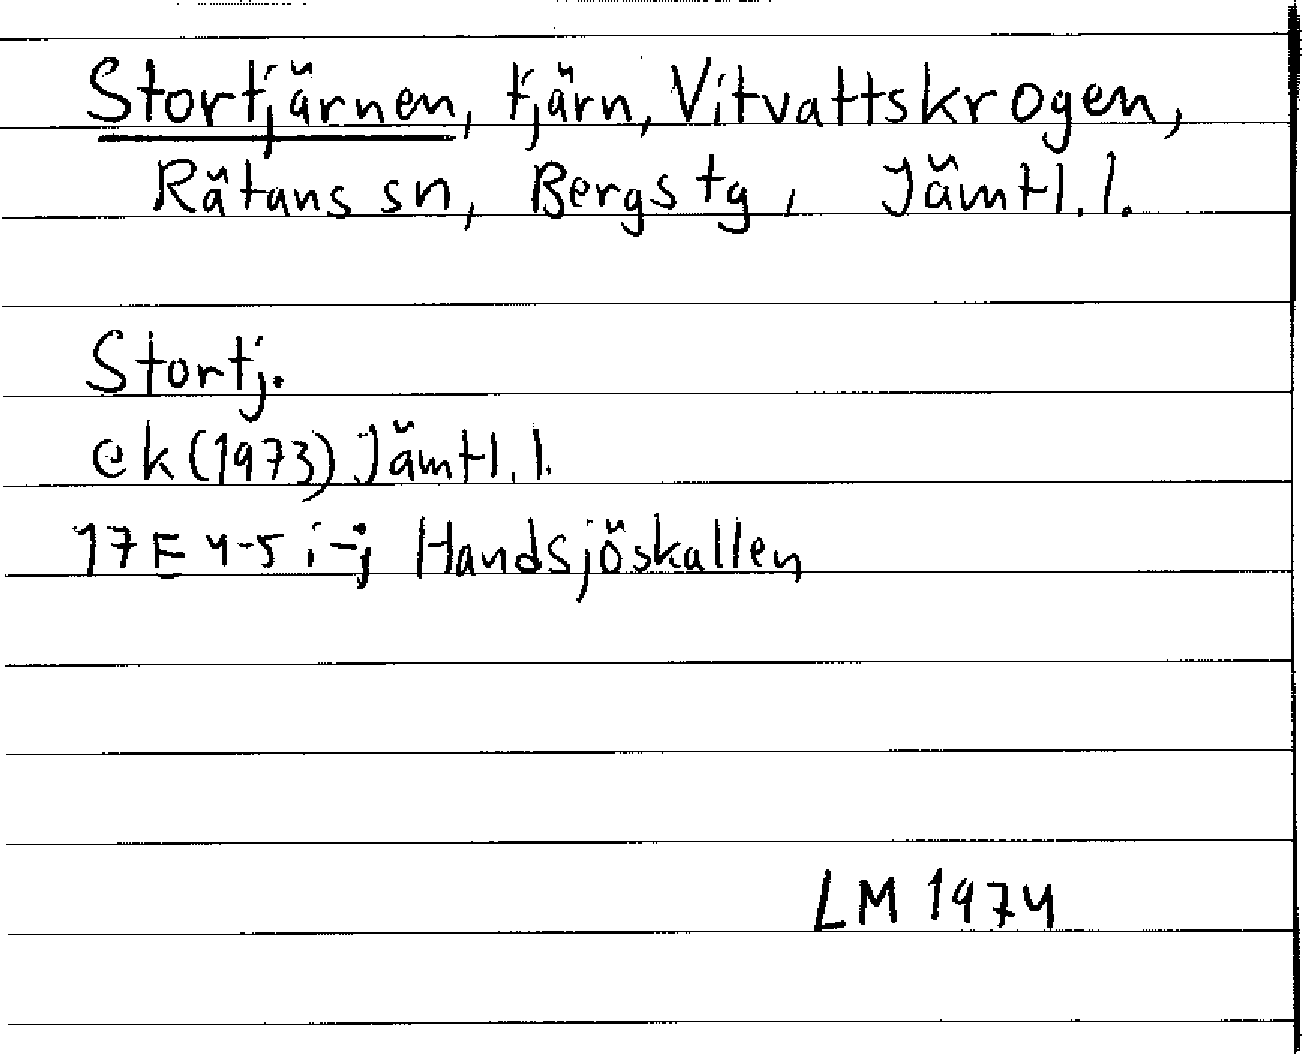 Stortjärnen, tjärn, Vitvattskrogen,
Rätans sn, Bergs tg, Jämtl. l.
Stortj.
ek (1973) Jämtl. l.
17E 4-5 i-j Handsjöskallen
LM 1974